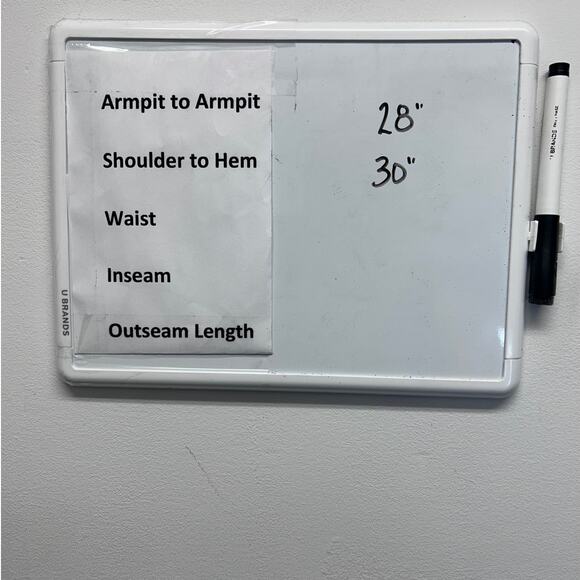 Armpit to Armpit 28"
Shoulder to Hem 30"
Waist
Inseam
Outseam Length
U BRANDS
U BRANDS